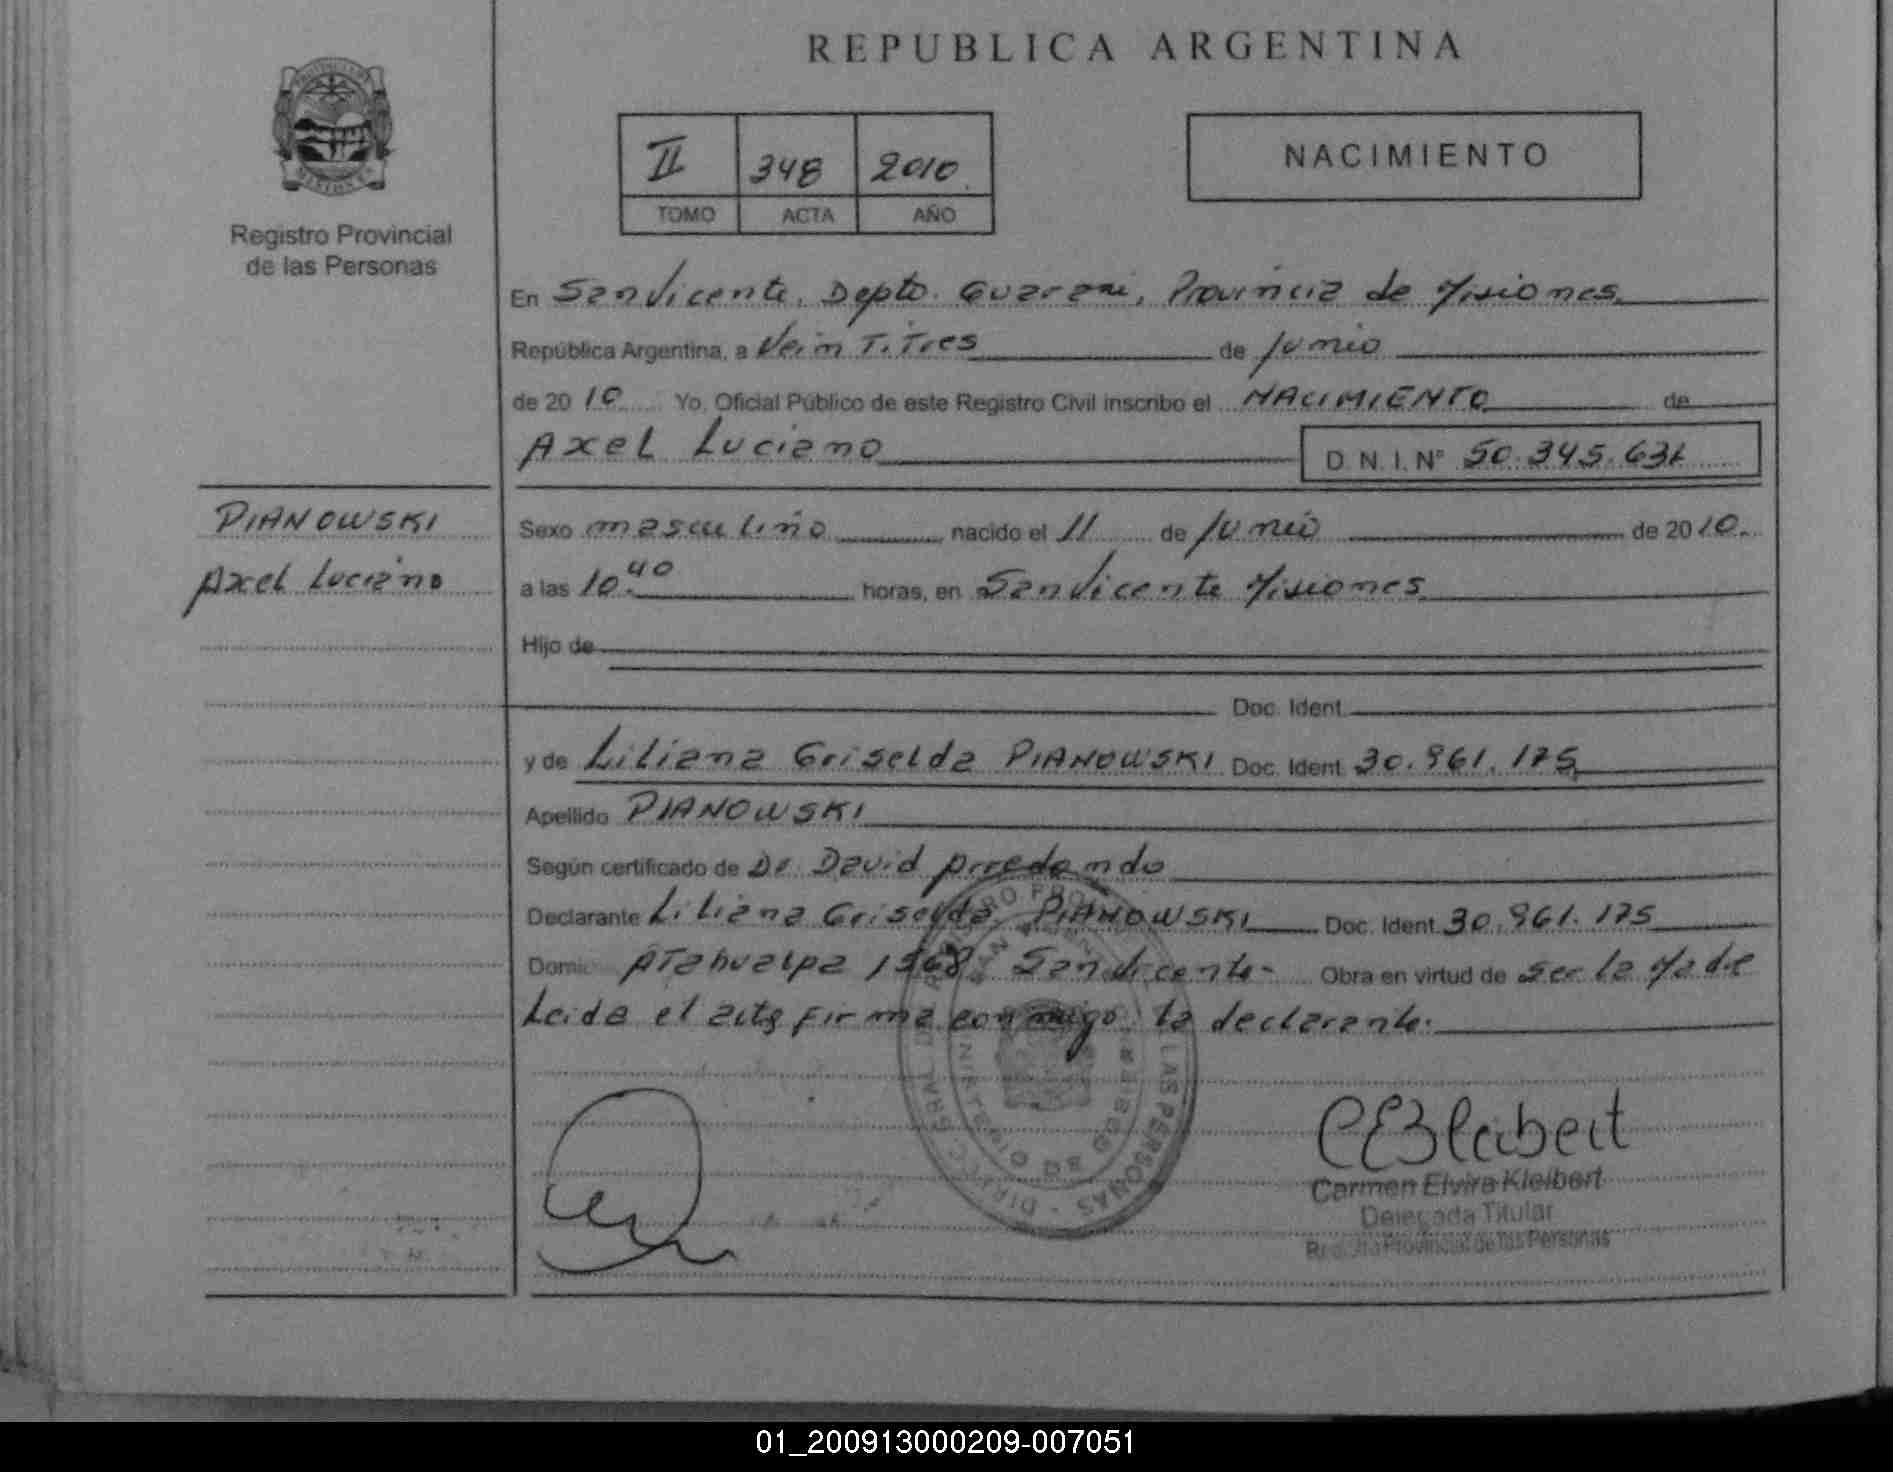 REPUBLICA ARGENTINA
PROVINCIA DE
MISIONES
Registro Provincial
de las Personas
II 348 2010
TOMO ACTA AÑO
NACIMIENTO
En San Vicente, Depto. Guarani, Provincia de Misiones
República Argentina, a Vein Ti Tres de Junio
de 2010 Yo, Oficial Público de este Registro Civil inscribo el NACIMIENTO de
Axel Luciano D. N. I. Nº 50.345.631
PIANOWSKI
Axel Luciano
Sexo masculino nacido el 11 de Junio de 2010.
a las 10.40 horas, en San Vicente Misiones
Hijo de
Doc. Ident.
y de Liliana Griselda PIANOWSKI Doc. Ident. 30.961.175
Apellido PIANOWSKI
Según certificado de Dr David Arredondo
Declarante Liliana Griselda PIANOWSKI Doc. Ident. 30.961.175
Domic Atahualpa 1568 San Vicente- Obra en virtud de ser la Madre
Leida el acta firma conmigo la declarante.
LAS PERSONAS
CEKleibert
Carmen Elvira Kleibert
Delegada Titular
Registro Provincial de las Personas
01_200913000209-007051